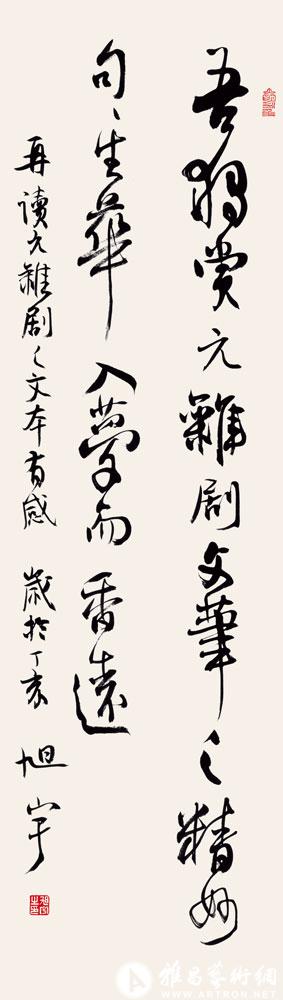 吾獨赏元雜剧文華之精妙
句〻生華入夢而香遠
再讀元雜剧之文本有感 歲於丁亥 旭宇
雅昌藝術網
WWW.ARTRON.NET